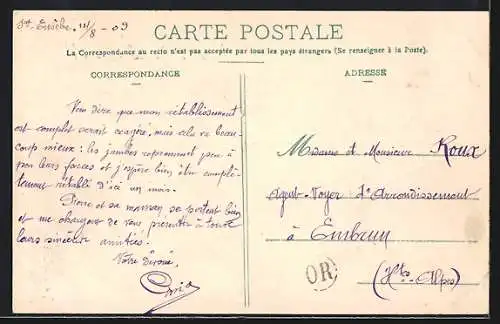 St Eusèbe, 11/8-09
CARTE POSTALE
La Correspondance au recto n'est pas acceptée par tous les pays étrangers (Se renseigner à la Poste)
CORRESPONDANCE
ADRESSE
Vous dire que mon rétablissement
est complet serait exagéré, mais cela va beau-
coup mieux : les jambes reprennent peu à
peu leurs forces et j'espère bien être complè-
tement rétabli d'ici un mois.
Pierre et sa maman se portent bien
et me chargent de vous présenter à tous
leurs sincères amitiés.
Votre dévoué,
Madame et Monsieur Roux
Agent-Voyer d'Arrondissement
à Embrun
(Htes-Alpes)
OR